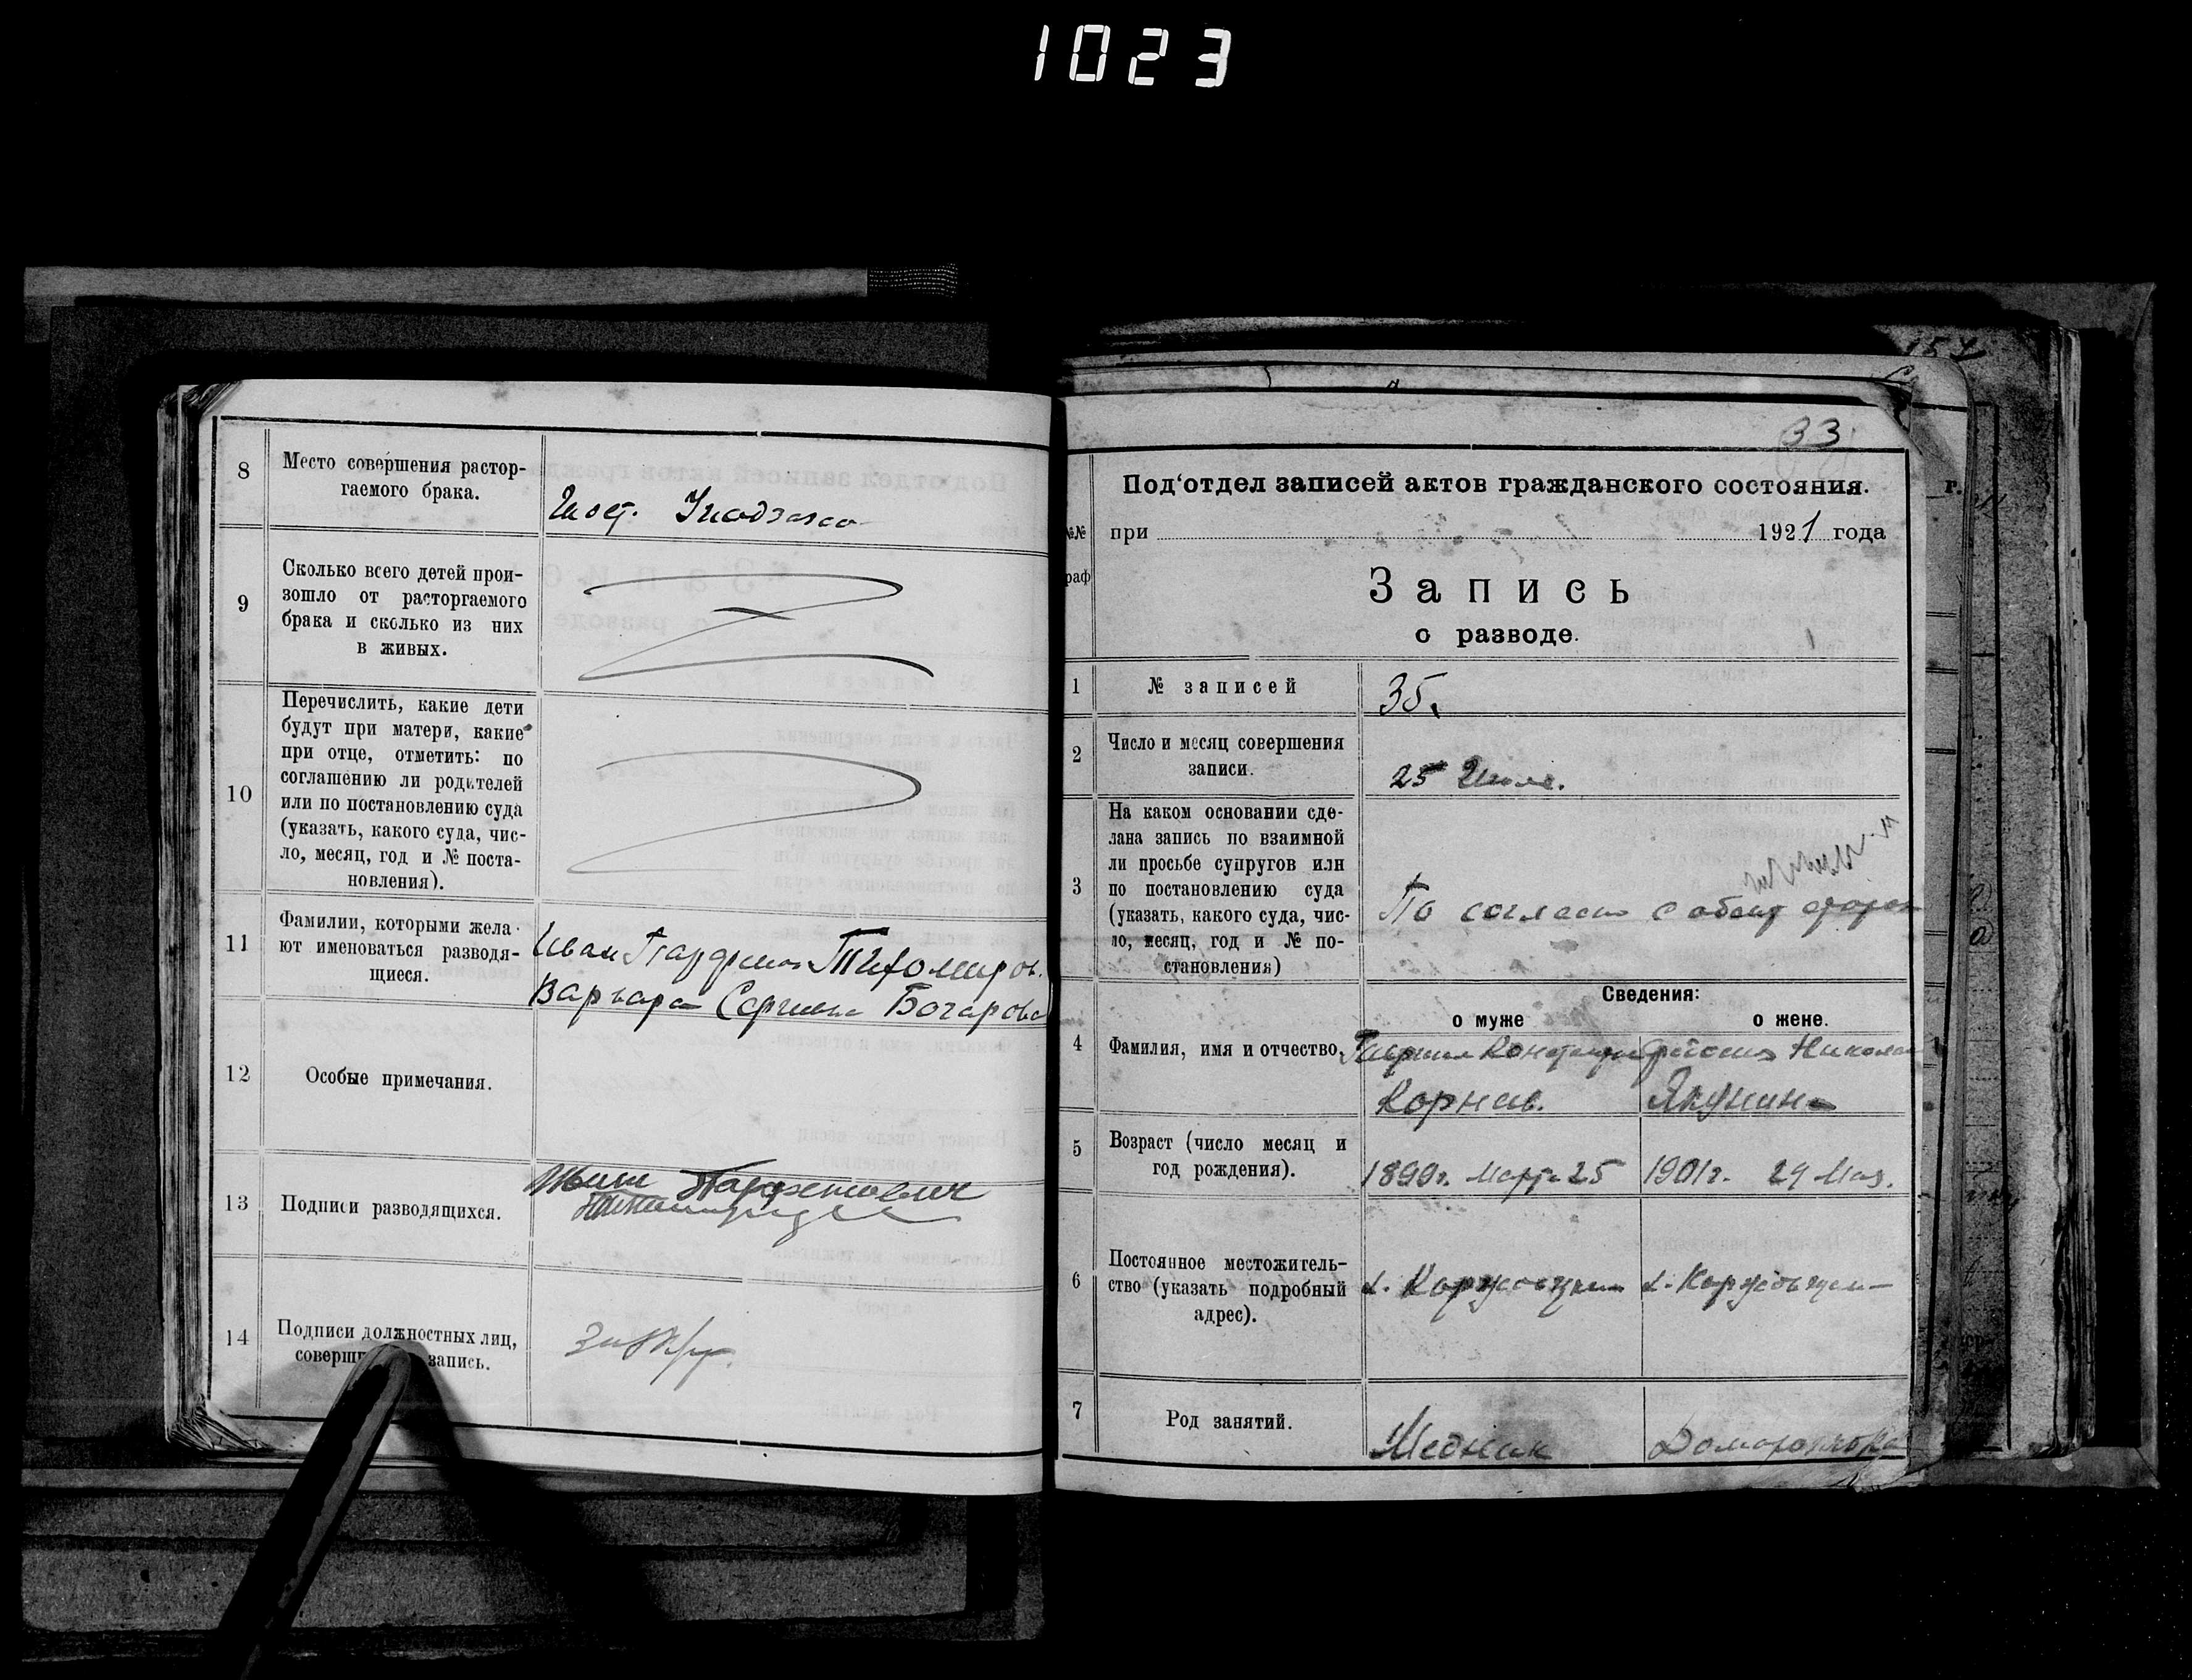 1023
8
Место совершения растор-
гаемого брака.
9
Сколько всего детей прои-
зошло от расторгаемого
брака и сколько из них
в живых.
10
Перечислить, какие дети
будут при матери, какие
при отце, отметить: по
соглашению ли родителей
или по постановлению суда
(указать, какого суда, чис-
ло, месяц, год и № поста-
новления).
11
Фамилии, которыми жела-
ют именоваться разводя-
щиеся.
Иван Парфенов Тихомиров.
Варвара Сергеевна Бочарова
12
Особые примечания.
13
Подписи разводящихся.
Иван Парфенович
14
Подписи должностных лиц,
соверши запись.
33
Под'отдел записей актов гражданского состояния.
№№
раф
при 1921 года
Запись
о разводе.
1
№ записей
35.
2
Число и месяц совершения
записи.
25 Июля.
3
На каком основании сде-
лана запись по взаимной
ли просьбе супругов или
по постановлению суда
(указать, какого суда, чис-
ло, месяц, год и № по-
становления)
По согласию с обеих сторон
Сведения:
о муже
о жене.
4
Фамилия, имя и отчество
Гавриил
Николае
Якунина
5
Возраст (число месяц и
год рождения).
1899г. Марта 25
1901г. 29 Мая.
6
Постоянное местожитель-
ство (указать подробный
адрес).
7
Род занятий.
Медник
157
г.